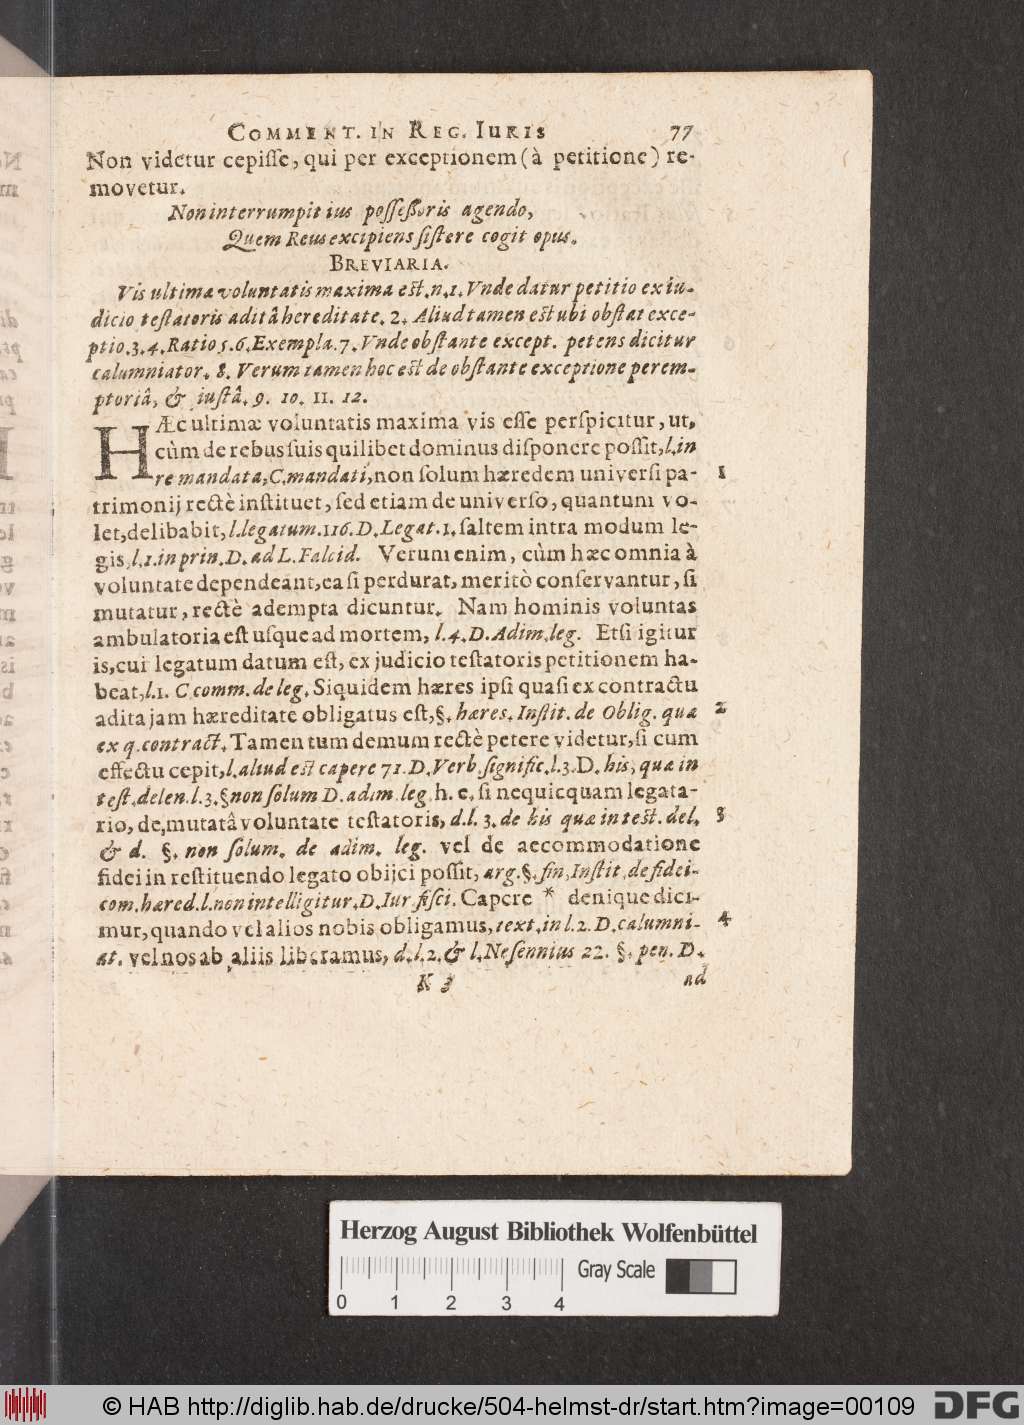 COMMENT. IN REG. IURIS 77
Non videtur cepisse, qui per exceptionem (à petitione) re-
movetur.
Non interrumpit ius possessoris agendo,
Quem Reus excipiens sistere cogit opus.
BREVIARIA.
Vis ultimæ voluntatis maxima est. n. 1. Vnde datur petitio ex iu-
dicio testatoris aditâ hereditate. 2. Aliud tamen est ubi obstat exce-
ptio. 3. 4. Ratio 5. 6. Exempla. 7. Vnde obstante except. petens dicitur
calumniator. 8. Verum tamen hoc est de obstante exceptione perem-
ptoriâ, & justâ. 9. 10. 11. 12.
HÆc ultimæ voluntatis maxima vis esse perspicitur, ut,
cùm de rebus suis quilibet dominus disponere possit, l. in
re mandata, C. mandati, non solum hæredem universi pa- 1
trimonij rectè instituet, sed etiam de universo, quantum vo-
let, delibabit, l. legatum. 116. D. Legat. 1. saltem intra modum le-
gis, l. 1. in prin. D. ad L. Falcid. Verum enim, cùm hæc omnia à
voluntate dependeant, ea si perdurat, meritò conservantur, si
mutatur, rectè adempta dicuntur. Nam hominis voluntas
ambulatoria est usque ad mortem, l. 4. D. Adim. leg. Etsi igitur
is, cui legatum datum est, ex judicio testatoris petitionem ha-
beat, l. 1. C. comm. de leg. Siquidem hæres ipsi quasi ex contractu
adita jam hæreditate obligatus est, §. hæres. Instit. de Oblig. quæ 2
ex q. contract. Tamen tum demum rectè petere videtur, si cum
effectu cepit, l. aliud est capere 71. D. Verb. signific. l. 3. D. his, quæ in
test. delen. l. 3. § non solum D. adim. leg. h. e. si nequicquam legata-
rio, de mutatâ voluntate testatoris, d. l. 3. de his quæ in test. del. 3
& d. §. non solum. de adim. leg. vel de accommodatione
fidei in restituendo legato obijci possit, arg. §. fin, Instit. de fidei-
com. hæred. l. non intelligitur. D. Iur. fisci. Capere * denique dici-
mur, quando vel alios nobis obligamus, text. in l. 2. D. calumni- 4
at. vel nos ab aliis liberamus, d. l. 2. & l. Nesennius 22. §. pen. D.
K 3 ad
Herzog August Bibliothek Wolfenbüttel
Gray Scale
0 1 2 3 4
© HAB http://diglib.hab.de/drucke/504-helmst-dr/start.htm?image=00109
DFG